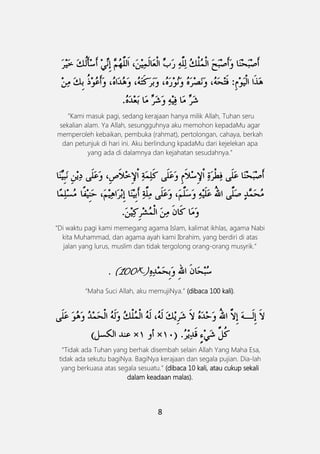 أَصْبَحْنَا وَأَصْبَحَ الْمُلْكُ لِلَّهِ رَبِّ الْعَالَمِيْنَ، اَللَّهُمَّ إِنِّيْ أَسْأَلُكَ خَيْرَ
هَذَا الْيَوْمِ: فَتْحَهُ، وَنَصْرَهُ، وَنُوْرَهُ، وَبَرَكَتَهُ، وَهُدَاهُ، وَأَعُوْذُ بِكَ مِنْ
شَرِّ مَا فِيْهِ وَشَرِّ مَا بَعْدَهُ.
"Kami masuk pagi, sedang kerajaan hanya milik Allah, Tuhan seru
sekalian alam. Ya Allah, sesungguhnya aku memohon kepadaMu agar
memperoleh kebaikan, pembuka (rahmat), pertolongan, cahaya, berkah
dan petunjuk di hari ini. Aku berlindung kpadaMu dari kejelekan apa
yang ada di dalamnya dan kejahatan sesudahnya."
أَصْبَحْنَا عَلَى فِطْرَةِ الْإِسْلَامِ وَعَلَى كَلِمَةِ الْإِخْلَاصِ، وَعَلَى دِيْنِ نَبِيِّنَا
مُحَمَّدٍ صَلَّى اللهُ عَلَيْهِ وَسَلَّمَ، وَعَلَى مِلَّةِ أَبِيْنَا إِبْرَاهِيْمَ، حَنِيْفًا مُسْلِمًا
وَمَا كَانَ مِنَ الْمُشْرِكِيْنَ.
"Di waktu pagi kami memegang agama Islam, kalimat ikhlas, agama Nabi
kita Muhammad, dan agama ayah kami Ibrahim, yang berdiri di atas
jalan yang lurus, muslim dan tidak tergolong orang-orang musyrik."
سُبْحَانَ اللهِ وَبِحَمْدِهِ(×100) .
"Maha Suci Allah, aku memujiNya." (dibaca 100 kali).
لَا إِلَـهَ إِلَّا اللهُ وَحْدَهُ لَا شَرِيْكَ لَهُ، لَهُ الْمُلْكُ وَلَهُ الْحَمْدُ وَهُوَ عَلَى
كُلِّ شَيْءٍ قَدِيْرُ. (١٠× أو ١× عند الكسل)
"Tidak ada Tuhan yang berhak disembah selain Allah Yang Maha Esa,
tidak ada sekutu bagiNya. BagiNya kerajaan dan segala pujian. Dia-lah
yang berkuasa atas segala sesuatu." (dibaca 10 kali, atau cukup sekali
dalam keadaan malas).
8